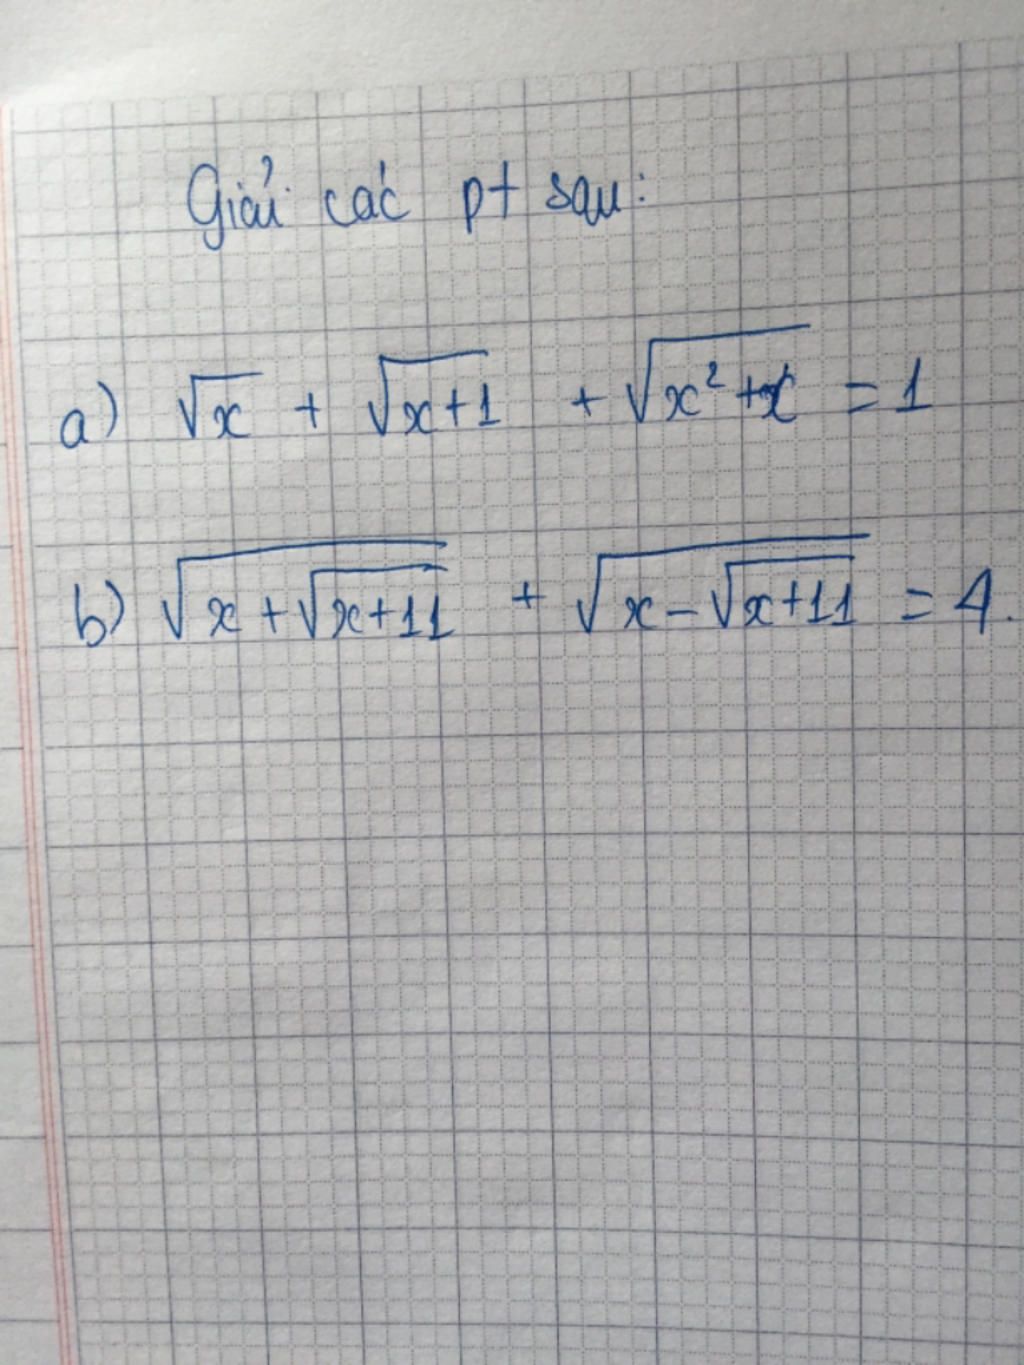 Giải các pt sau:
a) √x + √(x+1) + √(x²+x) = 1
b) √(x+√(x+11)) + √(x-√(x+11)) = 4.